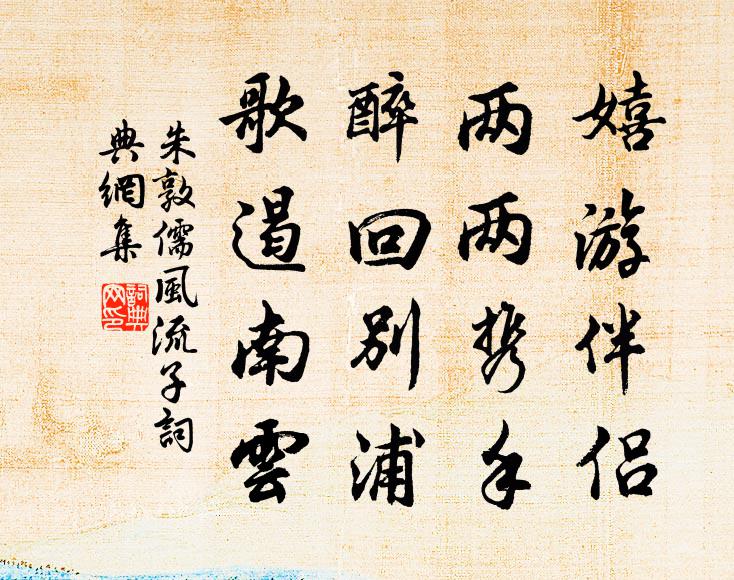 嬉游伴侣
两两携手
醉回别浦
歌遏南雲
朱敦儒風流子詞
典網集
詞典網印